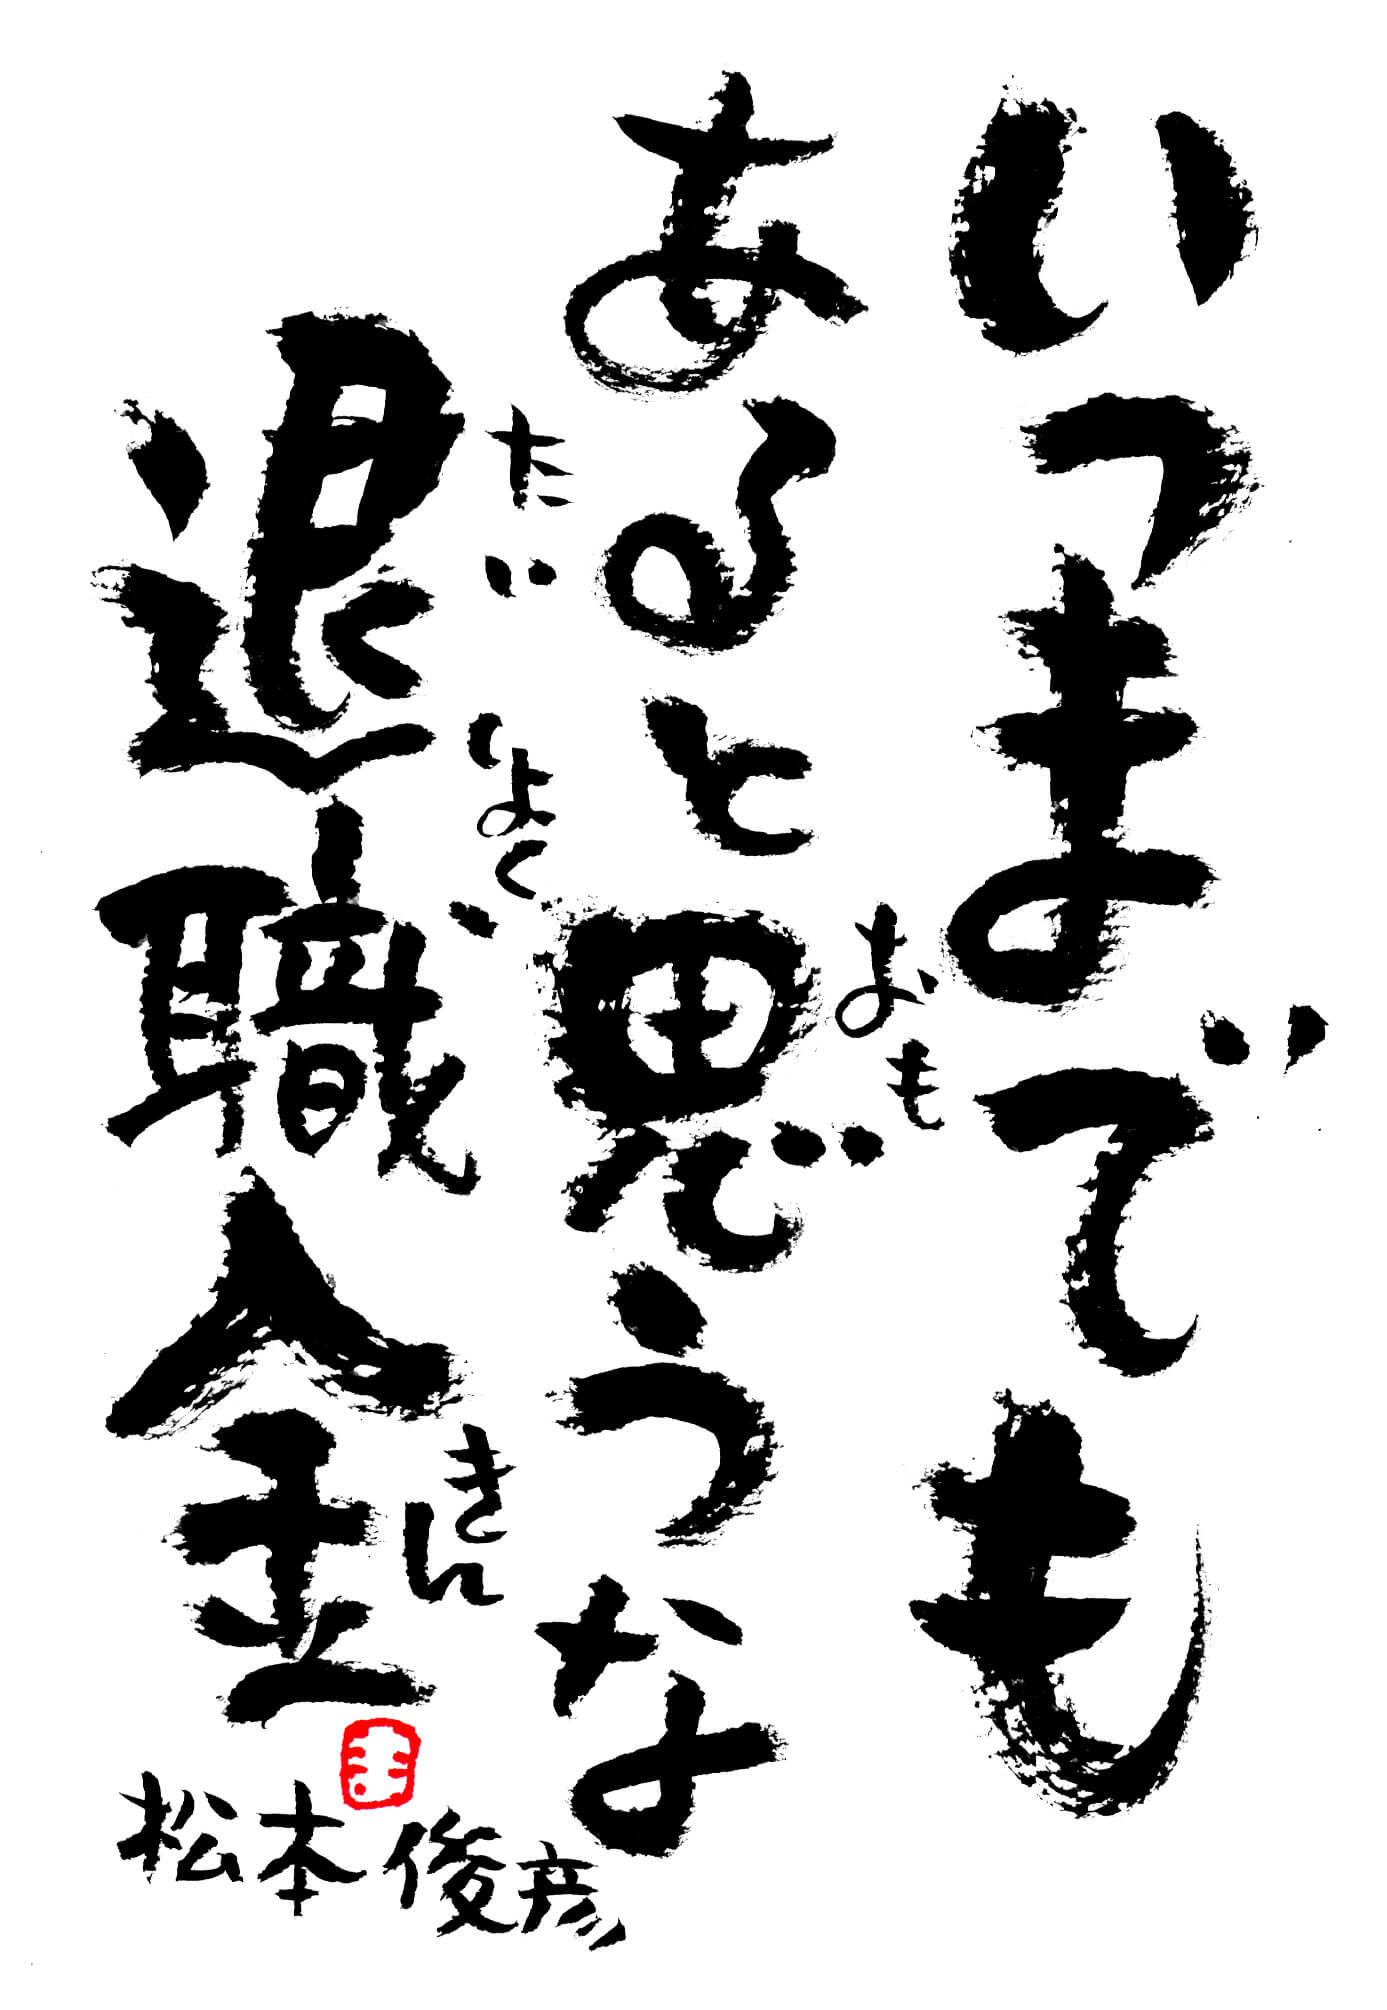 いつまでも
あると思うな
おも
退職金
たいしょく
きん
松本俊彦